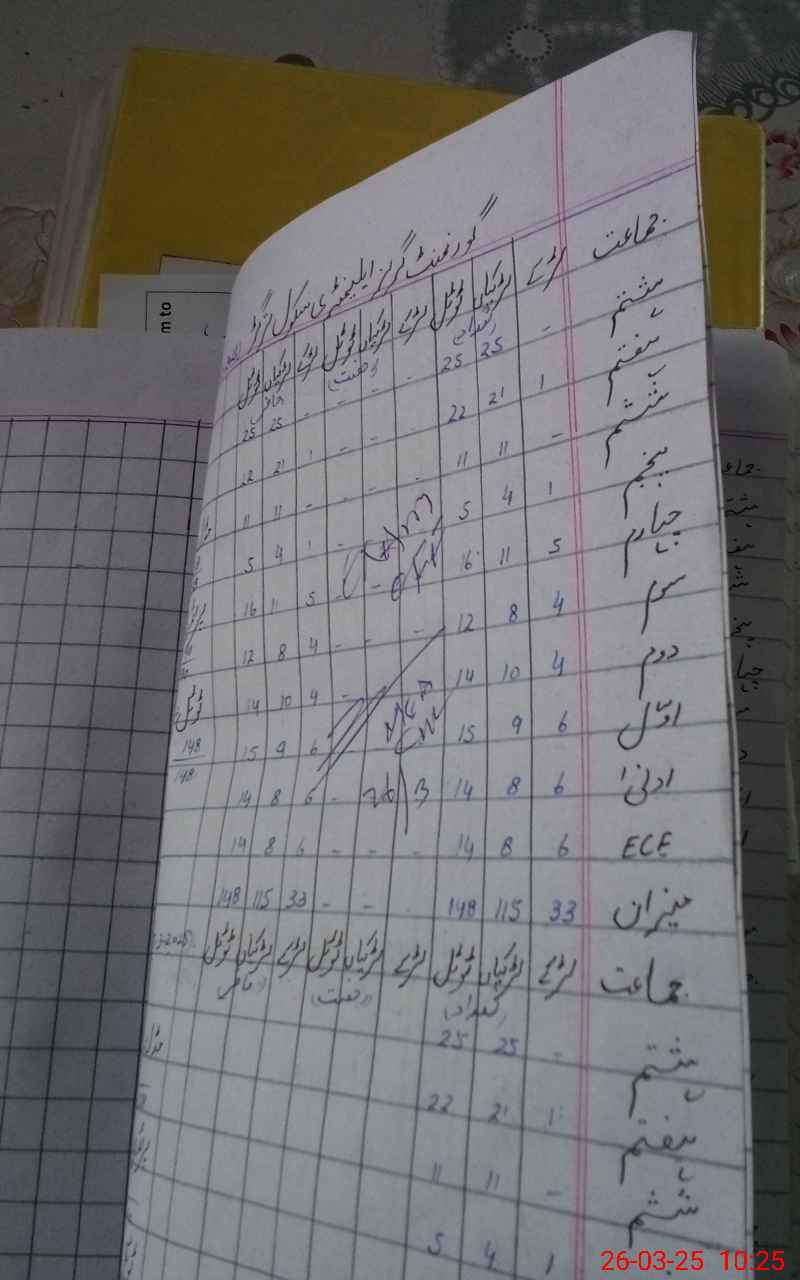 گورنمنٹ گرلز ایلیمنٹری سکول
جماعت لڑکے لڑکیاں ٹوٹل لڑکے لڑکیاں ٹوٹل لڑکے لڑکیاں ٹوٹل
(تعداد) (رخصت) (حاضر)
ہشتم - 25 25 - - - - 25 25
ہفتم 1 21 22 - - - 1 21 22
ششم - 11 11 - - - - 11 11
پنجم 1 4 5 1 4 5
چہارم 5 11 16 - - 5 11 16
سوم 4 8 12 - - - 4 8 12
دوم 4 10 14 - 4 10 14
اول 6 9 15 - - 6 9 15
ادنیٰ 6 8 14 - 6 8 14
ECE 6 8 14 - - - 6 8 14
میزان 33 115 148 - - - 33 115 148
ٹوٹل
148
148
جماعت لڑکے لڑکیاں ٹوٹل لڑکے لڑکیاں ٹوٹل لڑکے لڑکیاں ٹوٹل
(تعداد) (رخصت) (حاضر)
ہشتم - 25 25
ہفتم 1 21 22
ششم - 11 11
1 4 5
m to
26-03-25 10:25